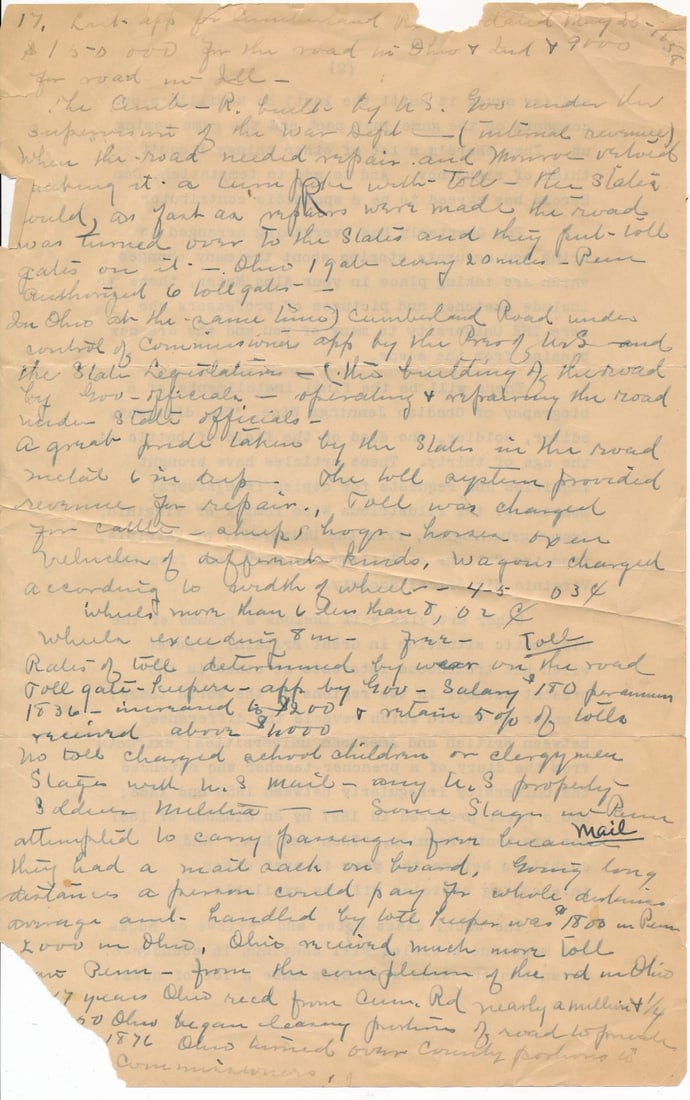 17. Last app for Cumberland dated May 25 - 1838
$150 000 for the road in Ohio & Ind & 9000
for road in Ill -
The Cumb - R. built by U.S. Gov under the
supervision of the War Dept - (internal revenue)
When the road needed repair and Monroe vetoed
making it a turn pike with Toll - the States
could, as fast as repairs were made the road
R
was turned over to the States and they put toll
gates on it - Ohio 1 gate every 20 miles - Penn
authorized 6 tollgates -
In Ohio at the same time) Cumberland Road under
control of Commissioners app by the Pres of U.S and
the State Legislatures - (the building of the road
by Gov - officials - operating & repairing the road
under State officials -
A great pride taken by the States in the road
metal 6 in deep The toll system provided
revenue for repair., Toll was charged
for cattle - sheep, hogs - horses oxen
Vehicles of different kinds, Wagons charged
according to width of wheels - 4-5 03¢
wheels more than 6 less than 8, 02 ¢
Wheels exceeding 8 in - free - Toll
Rates of toll determined by wear on the road
Toll gate-keepers - app by Gov - Salary $180 per annum
1836 - increased to $200 & retain 5% of tolls
received above $1000
No toll charged school children or clergymen
Stages with U.S mail - any U.S property -
Soldier Militia - - Some Stages in Penn
mail
attempted to carry passengers free because
they had a mail sack on board, Going long
distances a person could pay for whole distance
average amt - handled by toll keeper was $1800 in Penn
2000 in Ohio. Ohio received much more toll
Penn - from the completion of the rd in Ohio
47 years Ohio recd from Cum. Rd nearly a million & 1/4
50 Ohio began leasing portions of road to private
1876 Ohio turned over County portions to
Commissioners.